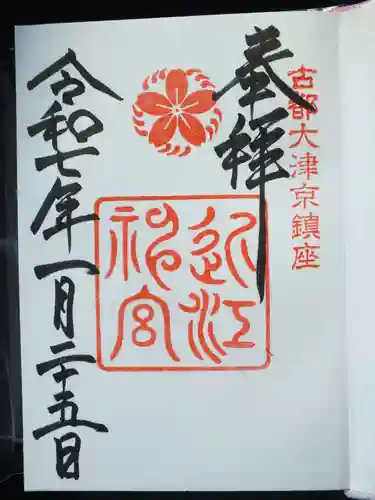 古都大津京鎮座
奉拝
近江神宮
令和七年一月二十五日